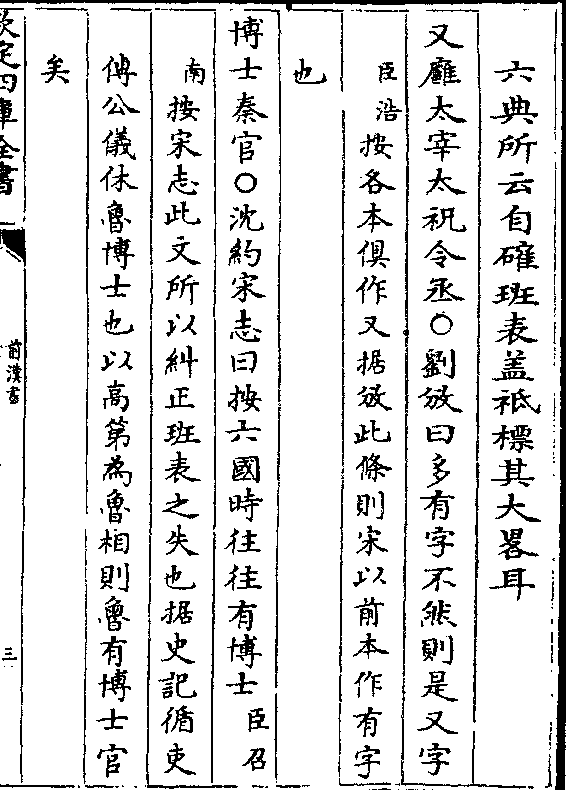 六典所云自確班表盖祗標其大畧耳
又廱太宰太祝令丞○劉攽曰多有字不然則是又字
臣浩按各本俱作又据攽此條則宋以前本作有字
也
博士秦官○沈約宋志曰按六國時往往有博士臣召
南按宋志此文所以糾正班表之失也据史記循吏
傳公儀休魯博士也以高第為魯相則魯有博士官
矣
欽定四庫全書
前漢書
三